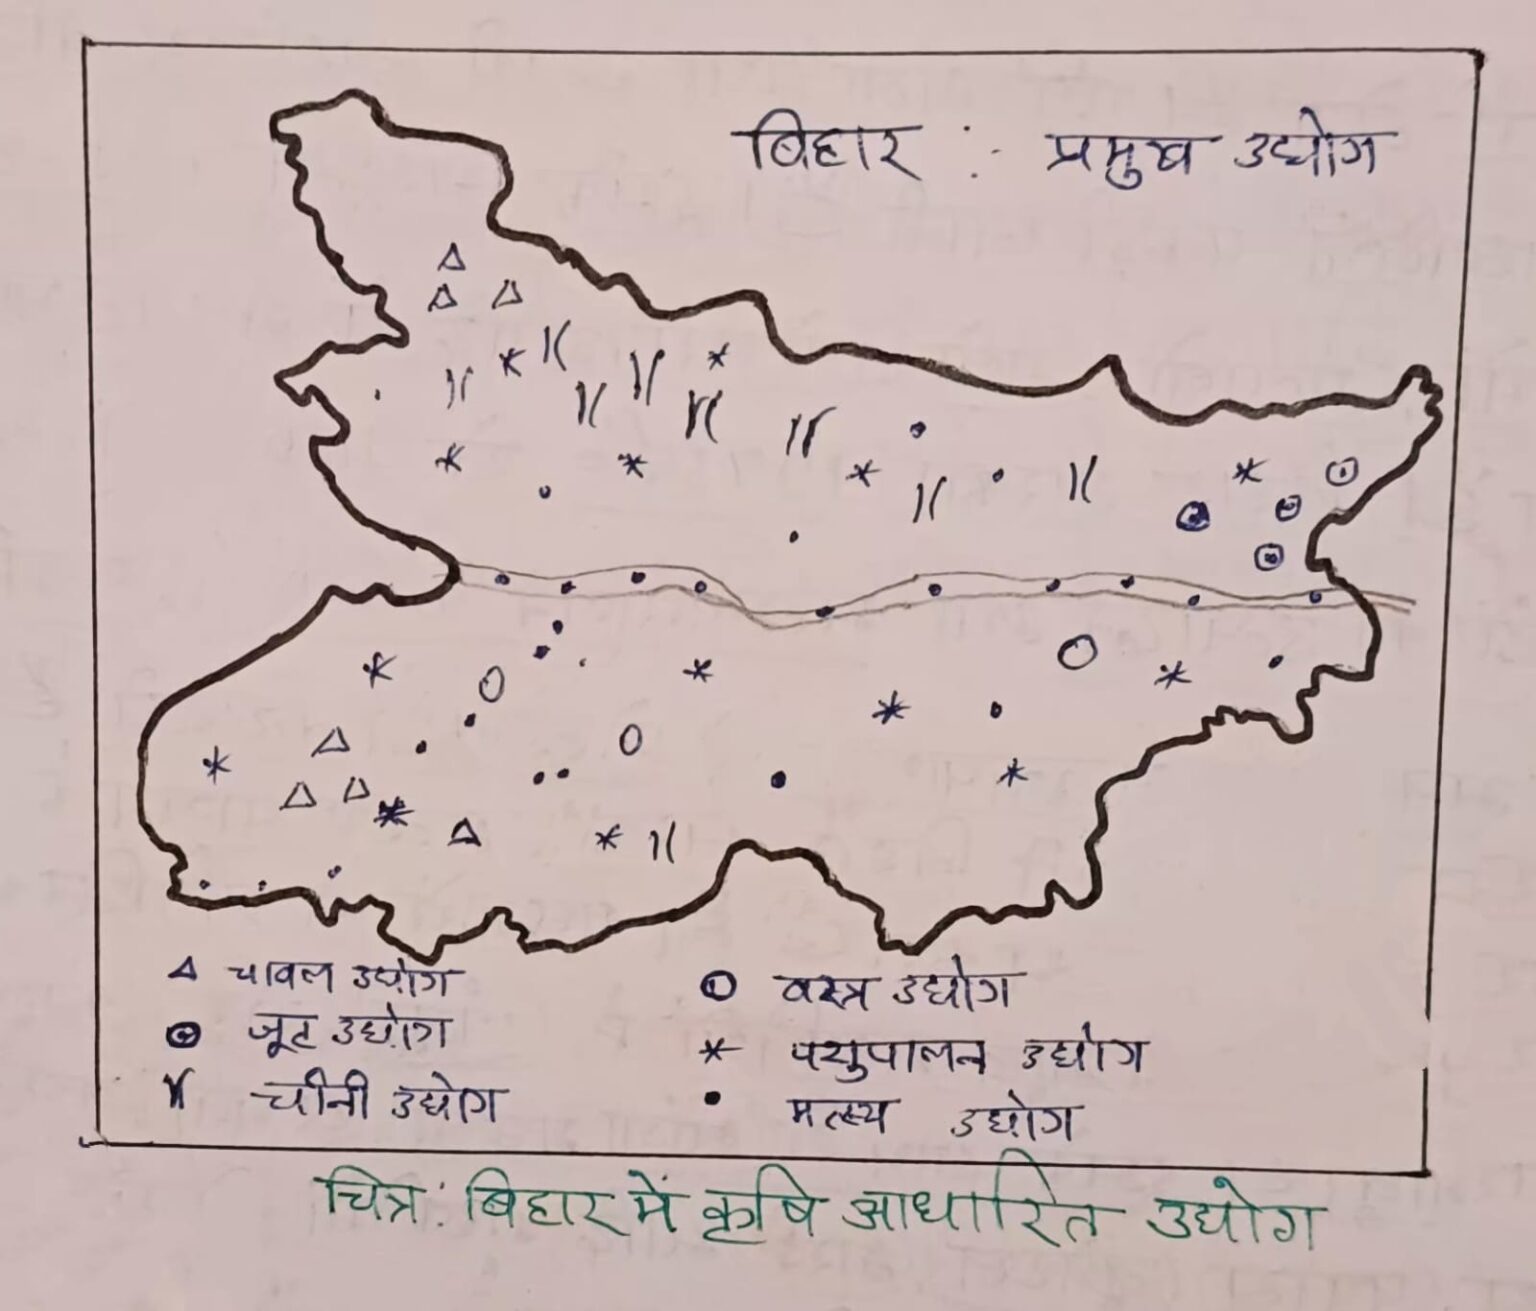 बिहार : प्रमुख उद्योग
चावल उद्योग
जूट उद्योग
चीनी उद्योग
वस्त्र उद्योग
पशुपालन उद्योग
मत्स्य उद्योग
चित्र: बिहार में कृषि आधारित उद्योग